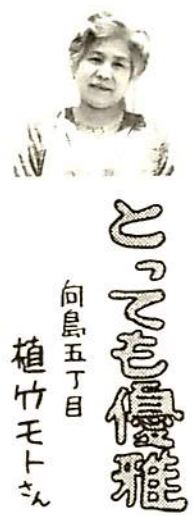 とっても優雅
向島五丁目
植竹モトさん